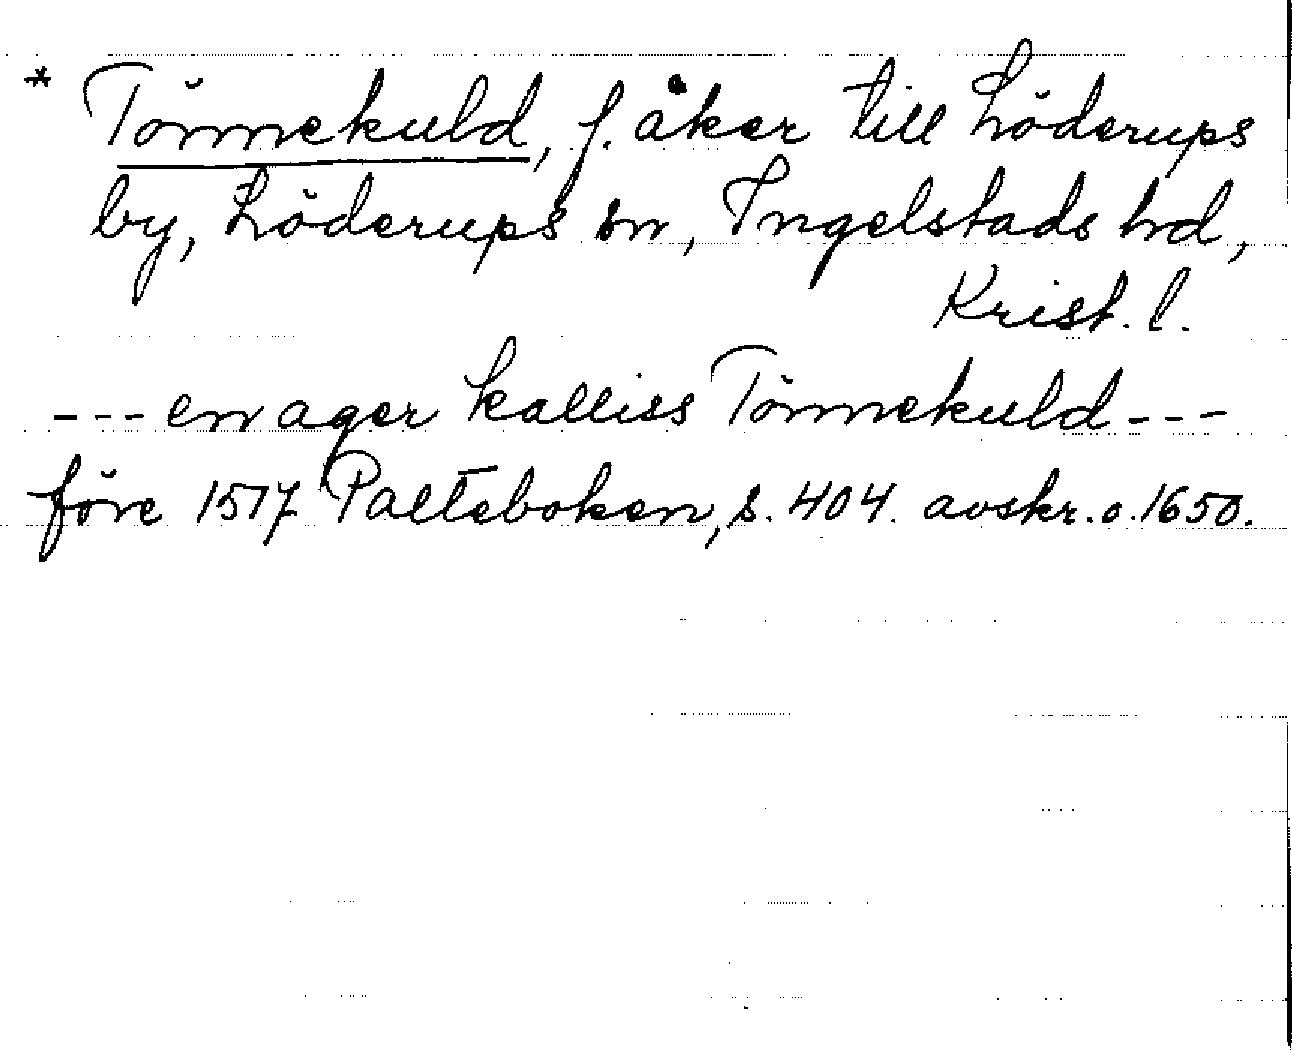 * Tönnekuld, f. åker till Löderups
by, Löderups sn, Ingelstads hd,
Krist. l.
--- en ager kalliss Tönnekuld ---
före 1517 Palteboken, s. 404. avskr. o. 1650.